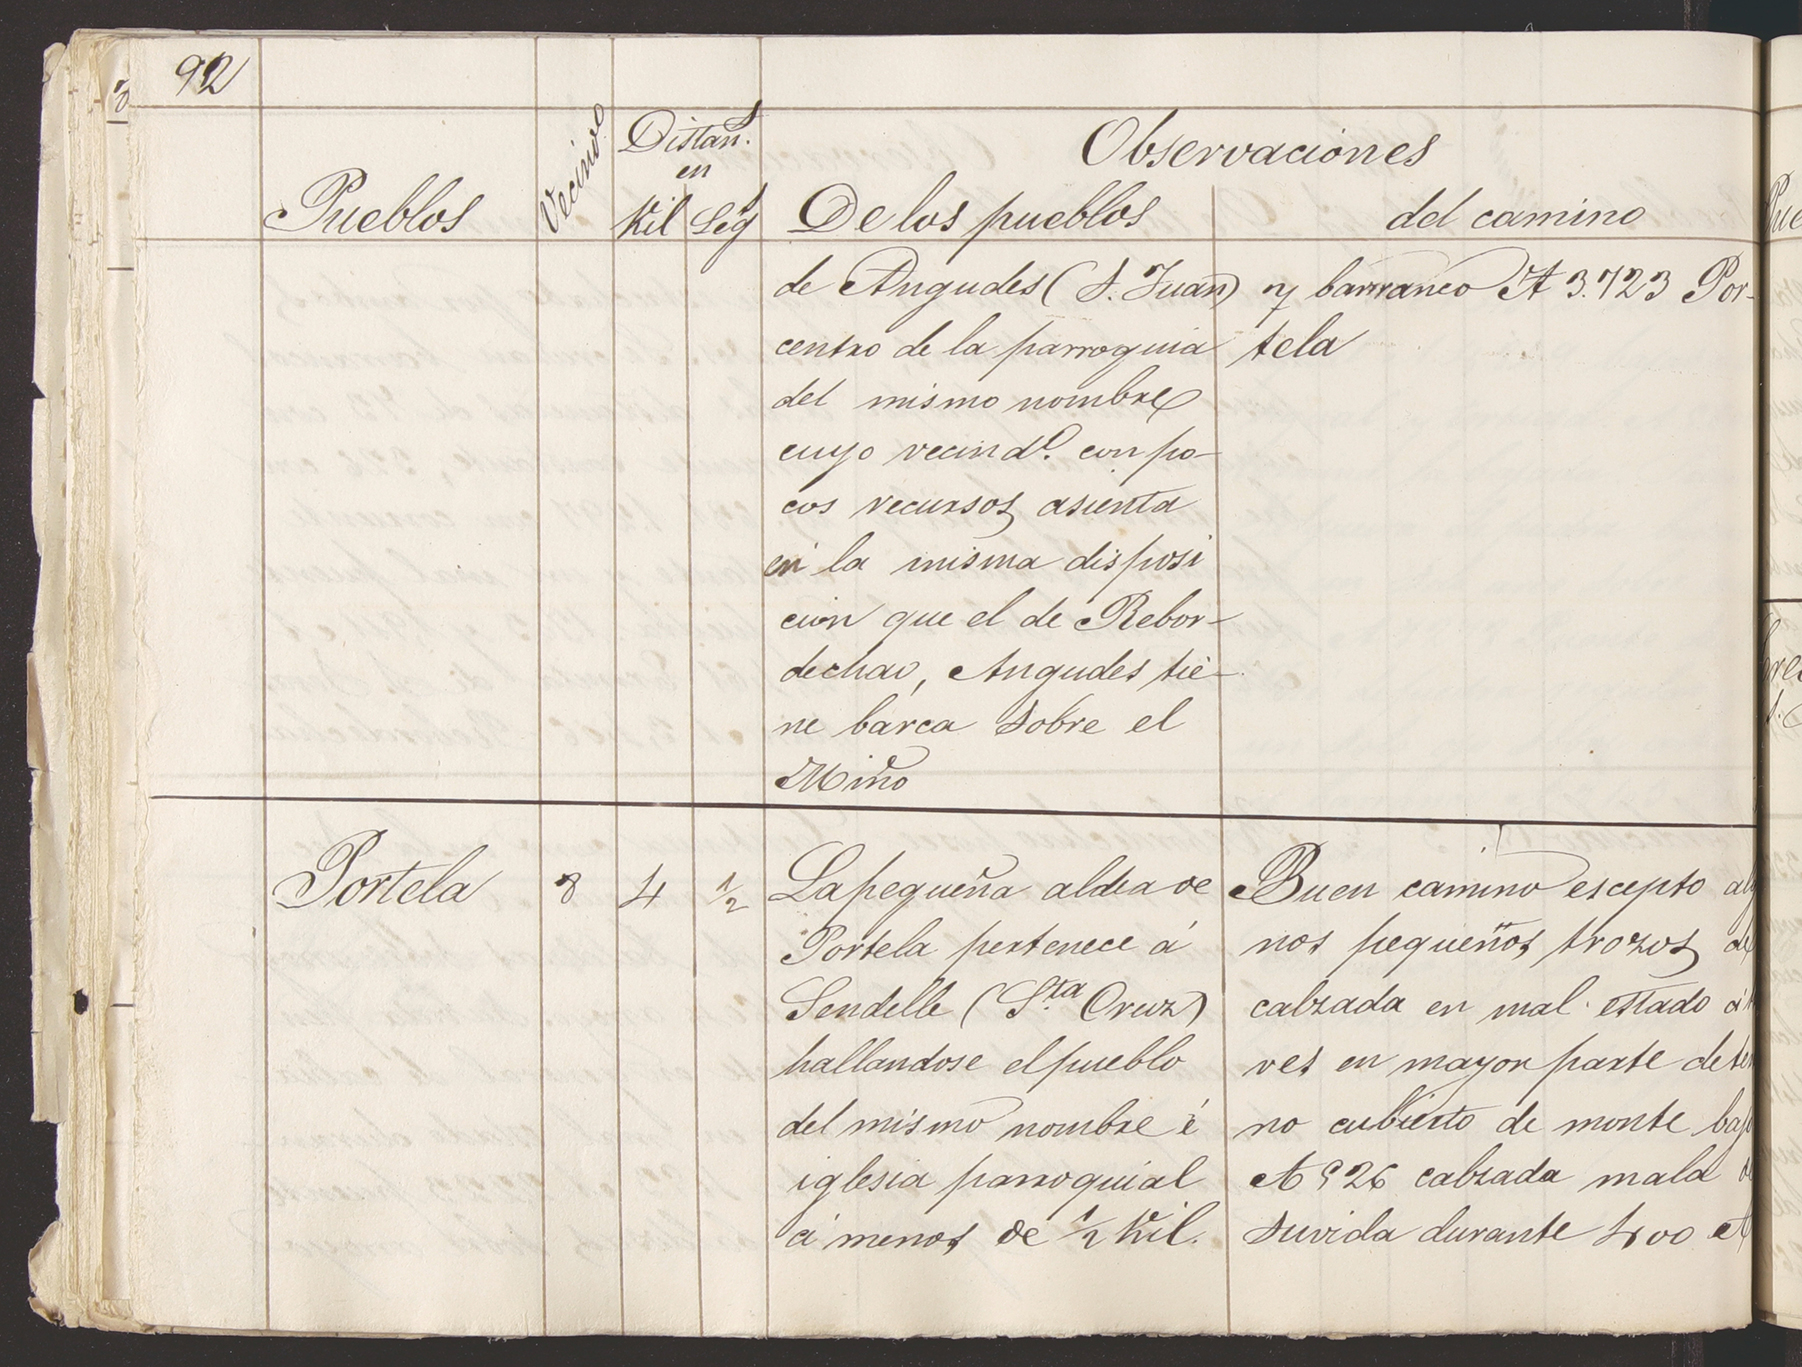 92
Observaciones
Pueblos Vecinos Distan.s en Kil Leg.s De los pueblos del camino
de Angudes (S. Juan)
centro de la parroquia
del mismo nombre
cuyo vecind.o con po-
cos recursos asienta
en la misma disposi
cion que el de Rebor-
dechao, Angudes tie-
ne barca sobre el
Miño
y barranco A 3.723 Por-
tela
Portela 8 4 1/2
La pequeña aldea de
Portela pertenece á
Sendelle (S.ta Cruz)
hallandose el pueblo
del mismo nombre é
iglesia parroquial
á menos de 1/2 Kil.
Buen camino escepto
nos pequeños trozos de
calzada en mal estado
ves en mayor parte de
no cubierto de monte bajo
A 926 calzada mala
suvida durante 400 A